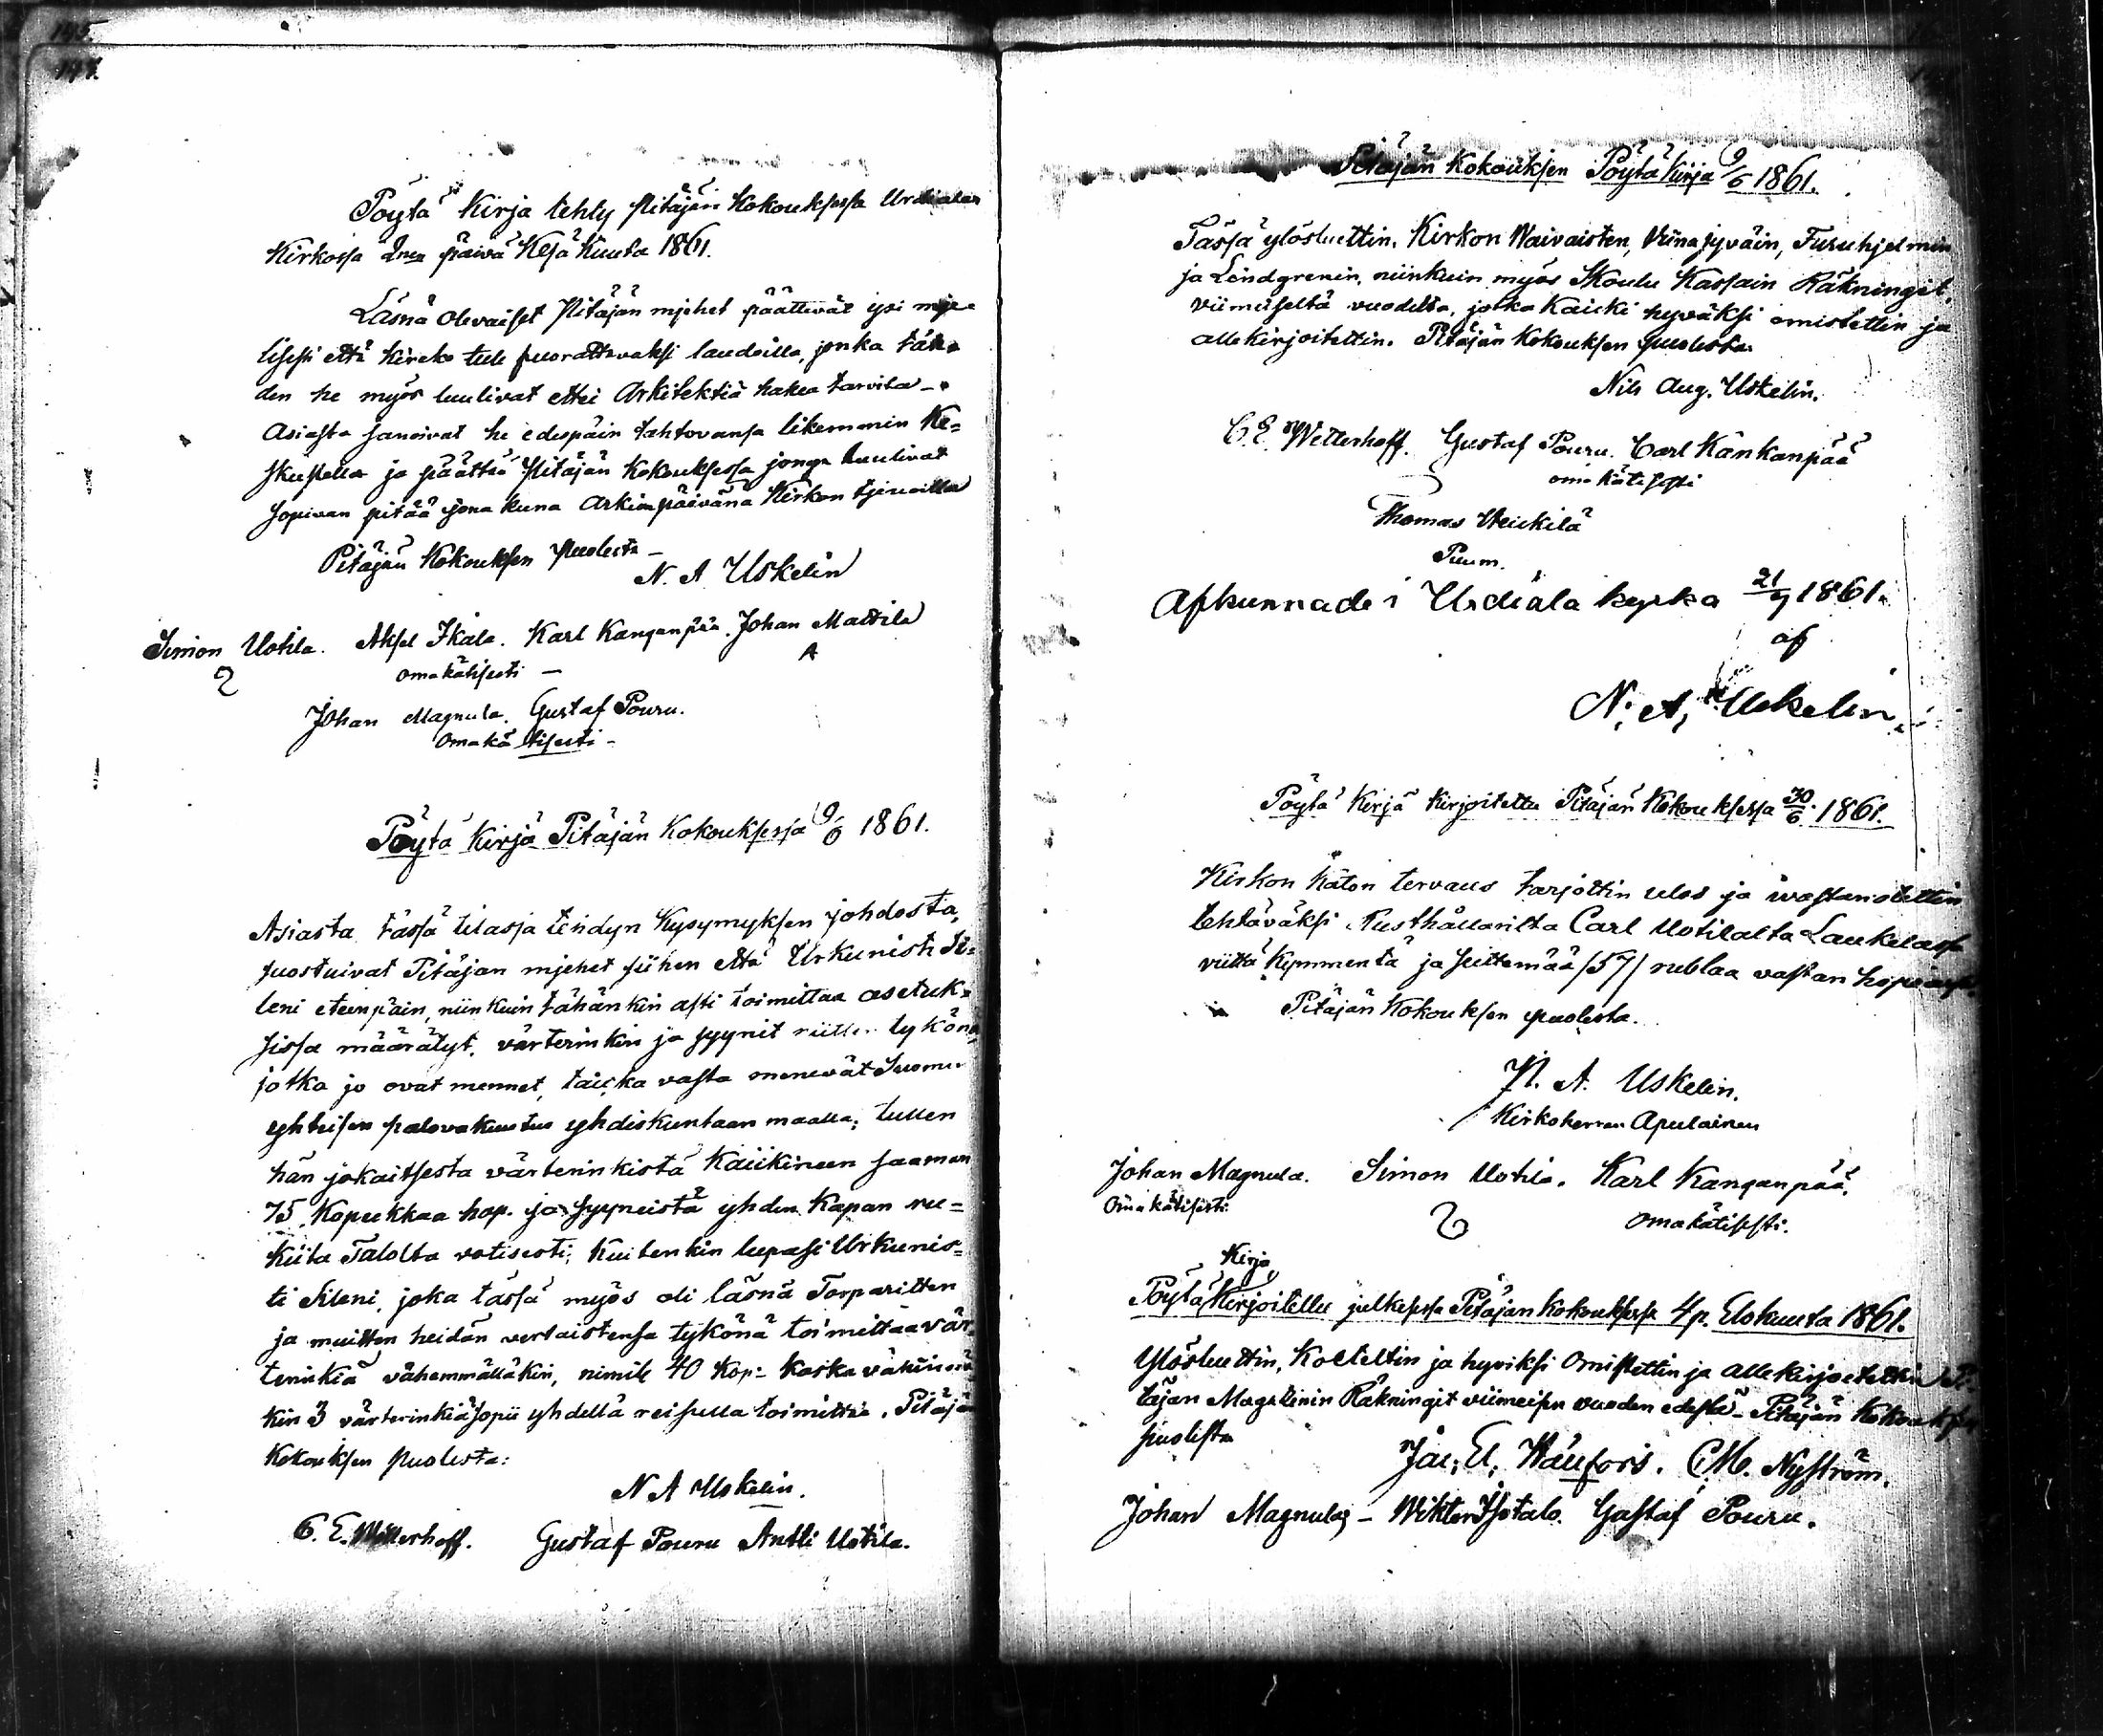 Pöytä Kirja tehty Pitäjän Kokouksesa Urdialan
Kirkosa 2nen päivä Kesä Kuuta 1861.
Läsnä olevaiset Pitäjän mjehet päättivät ysi mje-
lisesti että kircko tule suorattavaksi laudoilla, jonka täh-
den he myös luulivat ettei Arkitektiä hakea tarvita -
Asiasta sanoivat he edespäin tahtovansa likemmin Ke=
skustella ja päättää Pitäjän Kokouksessa jonga luulivat
sopivan pitää jona kuna Arkiapäivänä Kirkon tyinoilla
Pitäjän Kokouksen puolesta -
N. A Uskelin
Simon Uotila. Aksel Ikala. Karl Kanganpää. Johan Mattila
omakätisesti -
Johan Magnula. Gustaf Pouru.
Omakätisesti -
Pöytä Kirja Pitäjän Kokouksessa 9/6 1861.
Asiasta tässä tilassa tehdyn Kysymyksen johdosta,
suostuivat Pitäjän mjehet siihen että Urkunisti Si=
leni eteenpäin, niinkuin tähänkin asti toimittaa asetuk=
sissa määrätyt, värterinkin ja syynit niitten tykönä
jotka jo ovat mennet, taicka vasta menevät Suomen
yhteisen palovakuutus yhdiskuntaan maalla; tullen
hän jokaitsesta värterinkistä Kaiikineen saaman
75 Kopeekkaa hop. ja syyneistä yhden Kapan ru=
kiita Talolta votisesti; Kuitenkin lupasi Urkunis=
ti Sileni, joka tässä myös oli läsnä Torparitten
ja muitten heidän vertaistensa tykönä toimittaa vär=
terinkiä vähemmälläkin, nimitt. 40 Kop: koska vähinnä
kin 3 värterinkiä sopii yhdellä reisulla toimittaa. Pitäjän
Kokouksen puolesta:
N A Uskelin.
C. E. Wetterhoff. Gustaf Pouru Antti Uotila.
Pitäjän Kokouksen Pöytä Kirja 9/6 1861.
Tässä ylösluettin, Kirkon Waivaisten, Viina jyväin, Furuhjelmin
ja Lindgrenin, niinkuin myös Skoulu Kassain Räkningit,
viimeiseltä vuodelta, jotka Kaicki hyväksi omistettin ja
allekirjoitettin. Pitäjän Kokouksen puolesta.
Nils Aug. Uskelin.
C. E. Wetterhoff. Gustaf Pouru. Carl Kankanpää
oma kätisesti
Thomas Heickilä
Puum.
Afkunnade i Urdiala kyrka 21/9 1861.
af
N. A. Uskelin.
Pöytä Kirja Kirjoitettu Pitäjän Kokouksessa 30/6 1861.
Kirkon Katon tervaus tarjottin ulos ja wastanotettin
tehtäväksi Rusthållarilta Carl Uotilalta Laukelassa
viittä Kymmentä ja seittemää /57/ rublaa vastan hopiassa.
Pitäjän Kokouksen puolesta.
N. A. Uskelin.
Kirkoherran Apulainen
Johan Magnula. Simon Uotila. Karl Kanganpää.
Omakätisesti. omakätisesti.
Kirja
Pöytä Kirjoitettu julkisessa Pitäjän Kokouksessa 4 p. Elokuuta 1861.
Ylösluettin, Koeteltin ja hyviksi Omistettin ja allekirjoitettin Pi-
täjän Magasinin Räkningit viimeisen vuoden edestä - Pitäjän Kokouksen
puolesta
C M. Nyström.
Johan Magnula, - Wiktor Isotalo. Gustaf Pouru.